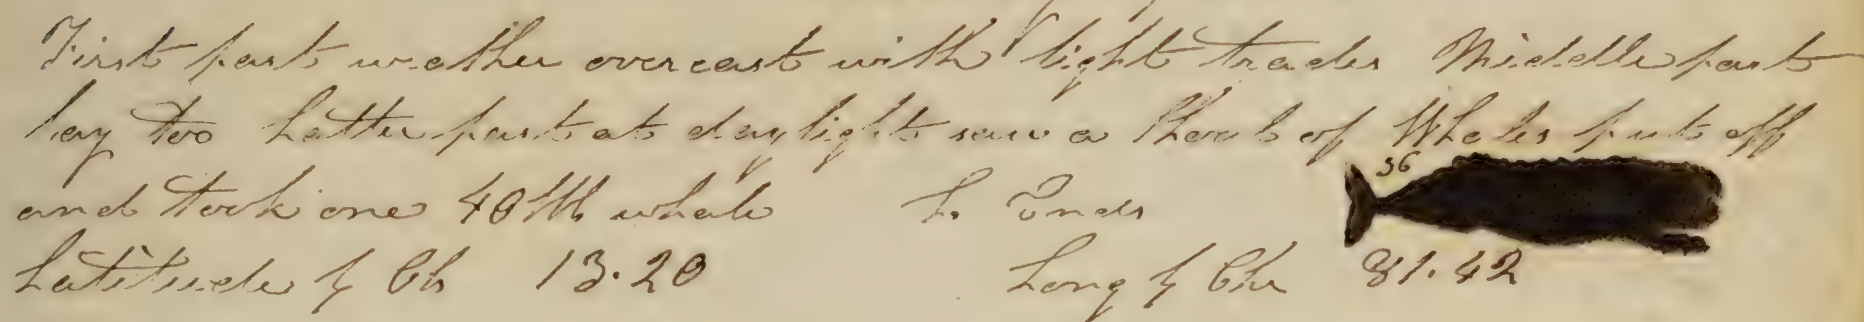 First part weather overcast with light trades Middle part
lay too Latter part at daylight saw a Shoal of Whales put off
and took one 40th whale So Ends
36
Latitude by Ob 13.20 Long by Chr 81.42